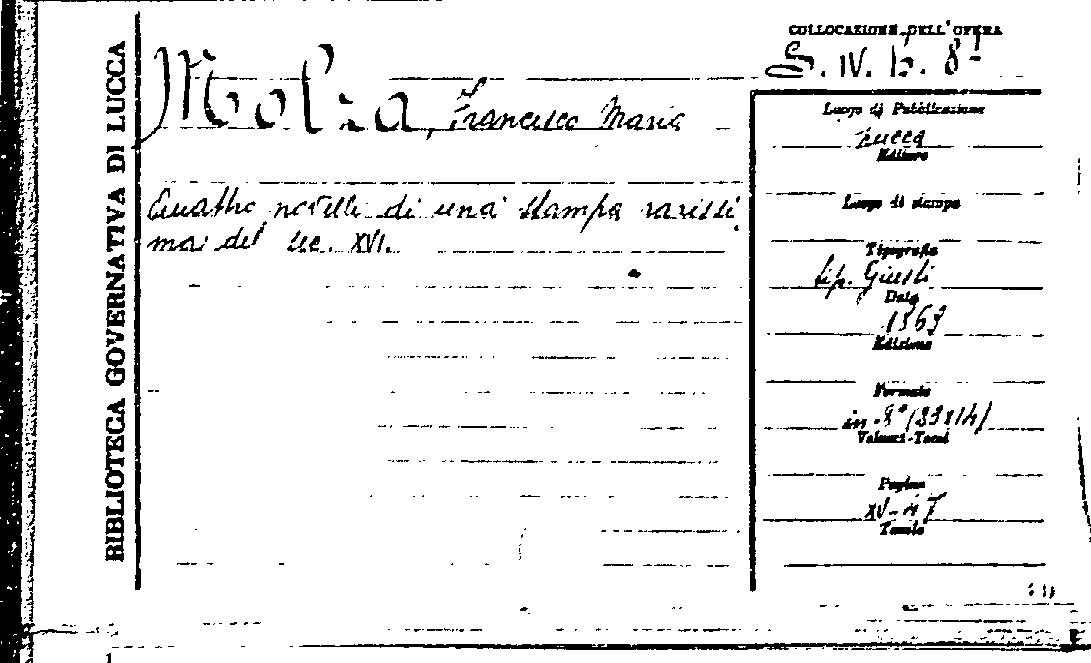 BIBLIOTECA GOVERNATIVA DI LUCCA
COLLOCAZIONE DELL'OPERA
Molza, Francesco Maria
Quattro novelle di una stampa rarissi
ma del sec. XVI.
Luogo di Pubblicazione
Lucca
Editore
Luogo di stampa
Tipografia
tip. Giusti
Data
Edizione
Formato
in-8°
Volumi-Tomi
Pagine
Tavole